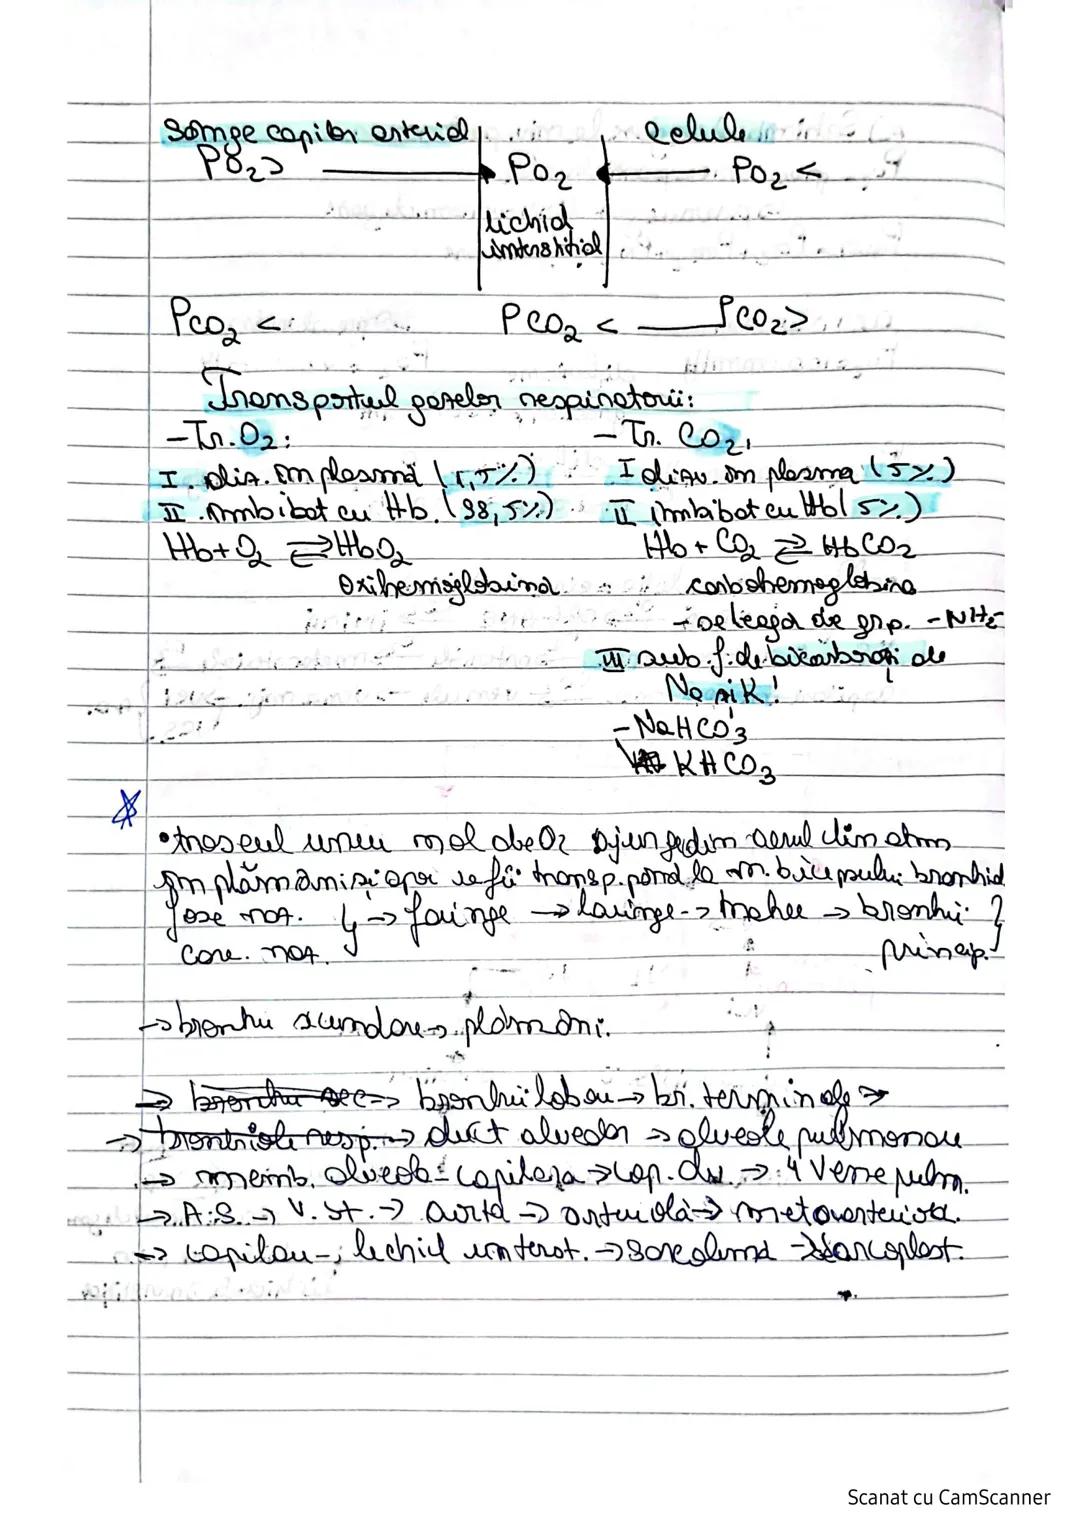 Sânge capilar arterial celule
PO2> PO2 PO2 <
lichid
interstițial
PCO2 < PCO2 < PCO2>
Transportul gazelor respiratorii:
-Tr. O2: - Tr. CO2:
I. diz. în plasmă (1,5%) I dizv. în plasma (5%)
II. îmbibat cu Hb. (98,5%) II îmbibat cu Hb (5%)
Hb+O2 ⇄ HbO2 Hb + CO2 ⇄ HbCO2
oxihemoglobina carbohemoglobina
→ se leagă de grp. -NH2
III sub. f. de bicarbonați de
Na și K!
- NaHCO3
KHCO3
• traseul unei mol de O2 ajunge din aerul din atm
în plămâni și apoi de fi transp. până la m. bicepsului brahial
fose naz. → faringe → laringe → trahee → bronhii
cav. naz. princip.
→ bronhii secundare → plămâni.
→ bronhii sec → bronhii lobau → br. terminale →
→ bronhiole resp. → duct alveolar → alveole pulmonau
→ memb. alveolo-capilara → cap. → 4 Vene pulm.
→ A.S. → V. st. → aorta → arteriolă → metaarteriola.
→ capilau → lichid interst. → sarcolema → sarcoplast.
Scanat cu CamScanner